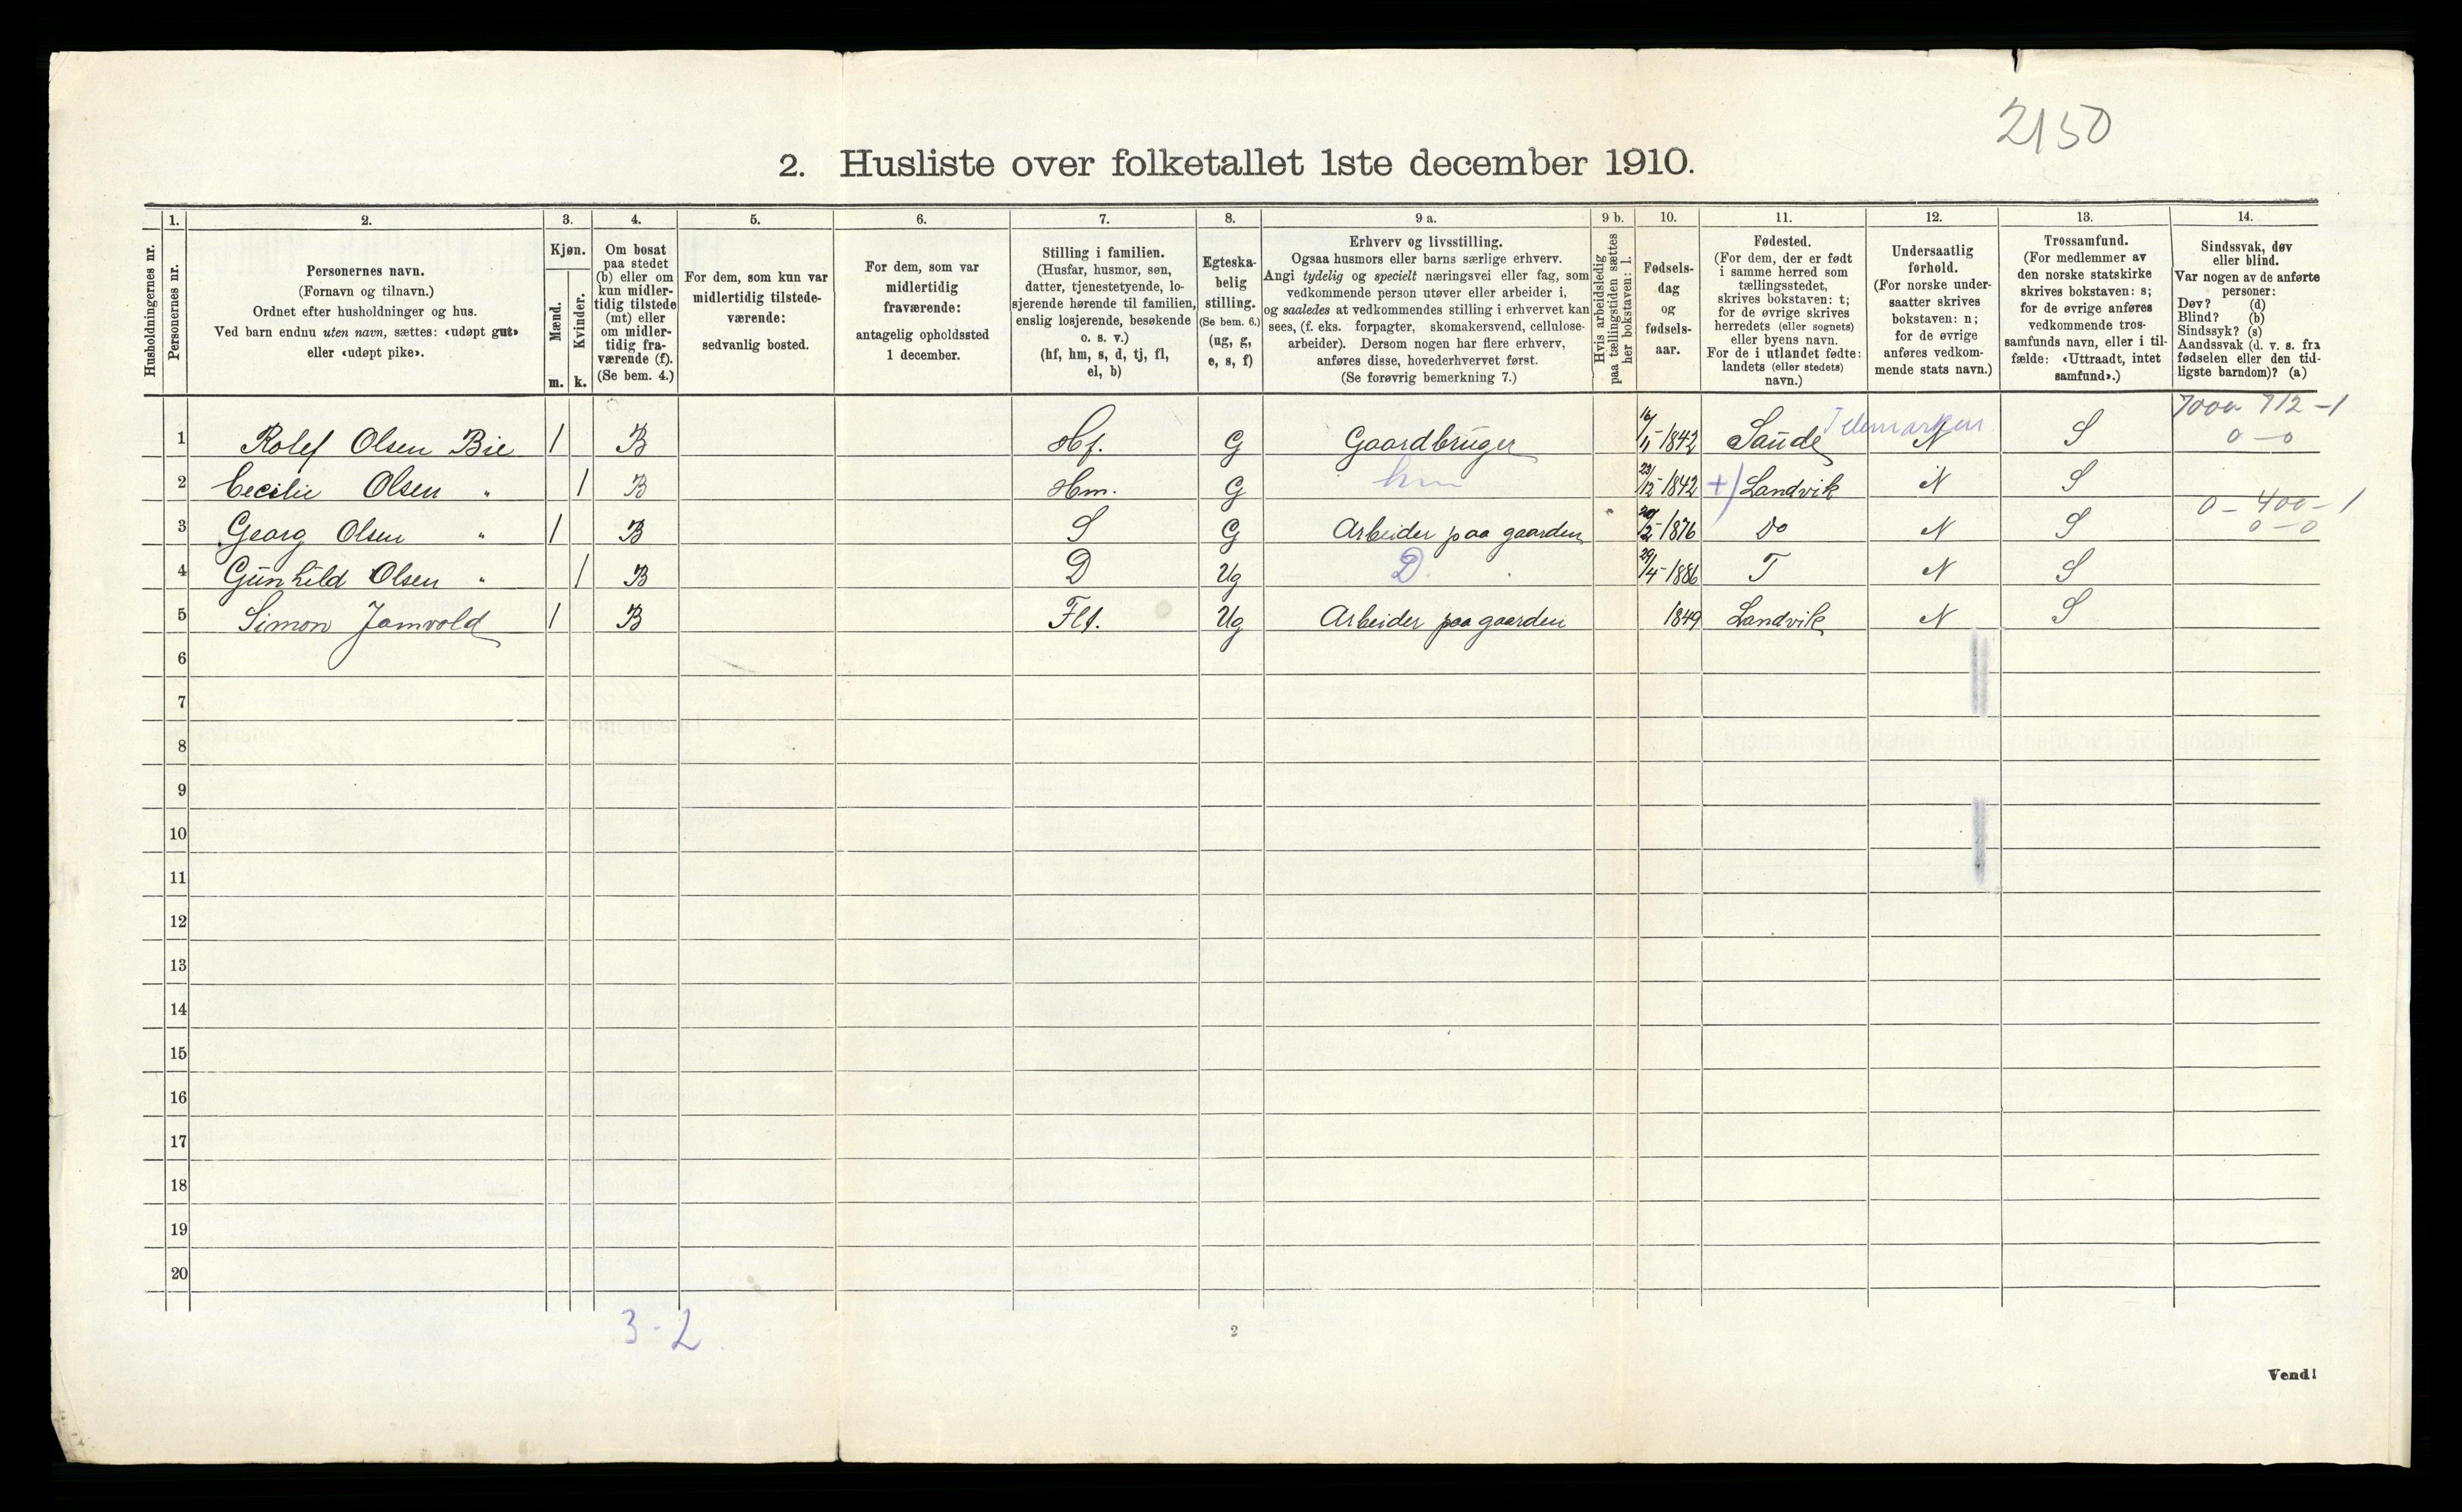 2150
2. Husliste over folketallet 1ste december 1910.
Husholdningernes nr.
1.
Personernes nr.
2.
Personernes navn.
(Fornavn og tilnavn.)
Ordnet efter husholdninger og hus.
Ved barn endnu uten navn, sættes: «udøpt gut»
eller «udøpt pike».
3.
Kjøn.
Mænd.
Kvinder.
m. k.
4.
Om bosat
paa stedet
(b) eller om
kun midler-
tidig tilstede
(mt) eller
om midler-
tidig fra-
værende (f).
(Se bem. 4.)
5.
For dem, som kun var
midlertidig tilstede-
værende:
sedvanlig bosted.
6.
For dem, som var
midlertidig
fraværende:
antagelig opholdssted
1 december.
7.
Stilling i familien.
(Husfar, husmor, søn,
datter, tjenestetyende, lo-
sjerende hørende til familien,
enslig losjerende, besøkende
o. s. v.)
(hf, hm, s, d, tj, fl,
el, b)
8.
Egteska-
belig
stilling.
(Se bem. 6.)
(ug, g,
e, s, f)
9 a.
Erhverv og livsstilling.
Ogsaa husmors eller barns særlige erhverv.
Angi tydelig og specielt næringsvei eller fag, som
vedkommende person utøver eller arbeider i,
og saaledes at vedkommendes stilling i erhvervet kan
sees, (f. eks. forpagter, skomakersvend, cellulose-
arbeider). Dersom nogen har flere erhverv,
anføres disse, hovederhvervet først.
(Se forøvrig bemerkning 7.)
9 b.
Hvis arbeidsledig
paa tællingstiden sættes
her bokstaven: l.
10.
Fødsels-
dag
og
fødsels-
aar.
11.
Fødested.
(For dem, der er født
i samme herred som
tællingsstedet,
skrives bokstaven: t;
for de øvrige skrives
herredets (eller sognets)
eller byens navn.
For de i utlandet fødte:
landets (eller stedets)
navn.)
12.
Undersaatlig
forhold.
(For norske under-
saatter skrives
bokstaven: n;
for de øvrige
anføres vedkom-
mende stats navn.)
13.
Trossamfund.
(For medlemmer av
den norske statskirke
skrives bokstaven: s;
for de øvrige anføres
vedkommende tros-
samfunds navn, eller i til-
fælde: «Uttraadt, intet
samfund».)
14.
Sindssvak, døv
eller blind.
Var nogen av de anførte
personer:
Døv? (d)
Blind? (b)
Sindssyk? (s)
Aandssvak (d. v. s. fra
fødselen eller den tid-
ligste barndom)? (a)
1 Rolef Olsen Bie 1 B Hf. G Gaardbruger 16/11-1842 Saude Telemarken N S 7000 712-1
0-0
2 Cecilie Olsen " 1 B Hm. G hm 23/12-1842 +) Landvik N S
3 Georg Olsen " 1 B S G Arbeider paa gaarden 20/2-1876 Do N S 0-400-1
0-0
4 Gunhild Olsen " 1 B D Ug D. 29/4-1886 T N S
5 Simon Jamvold 1 B Flf. Ug Arbeider paa gaarden 1849 Landvik N S
6
7
8
9
10
11
12
13
14
15
16
17
18
19
20
3-2
2
Vend!